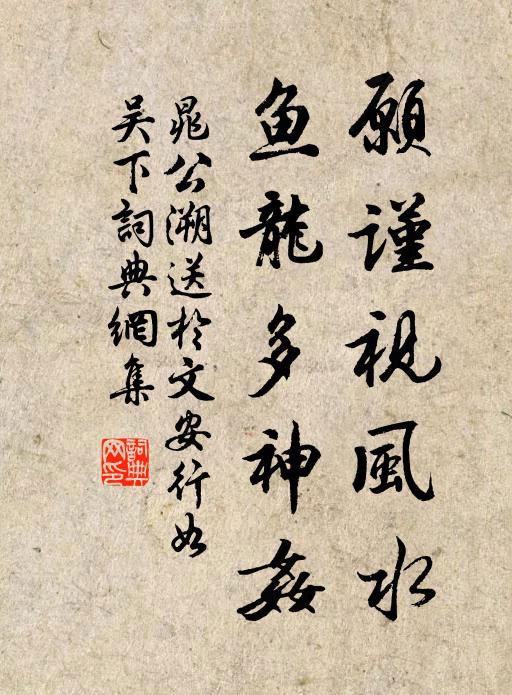 願謹視風水
鱼龍多神姦
晁公溯送於文安行如
吴下詞典網集
詞典網印